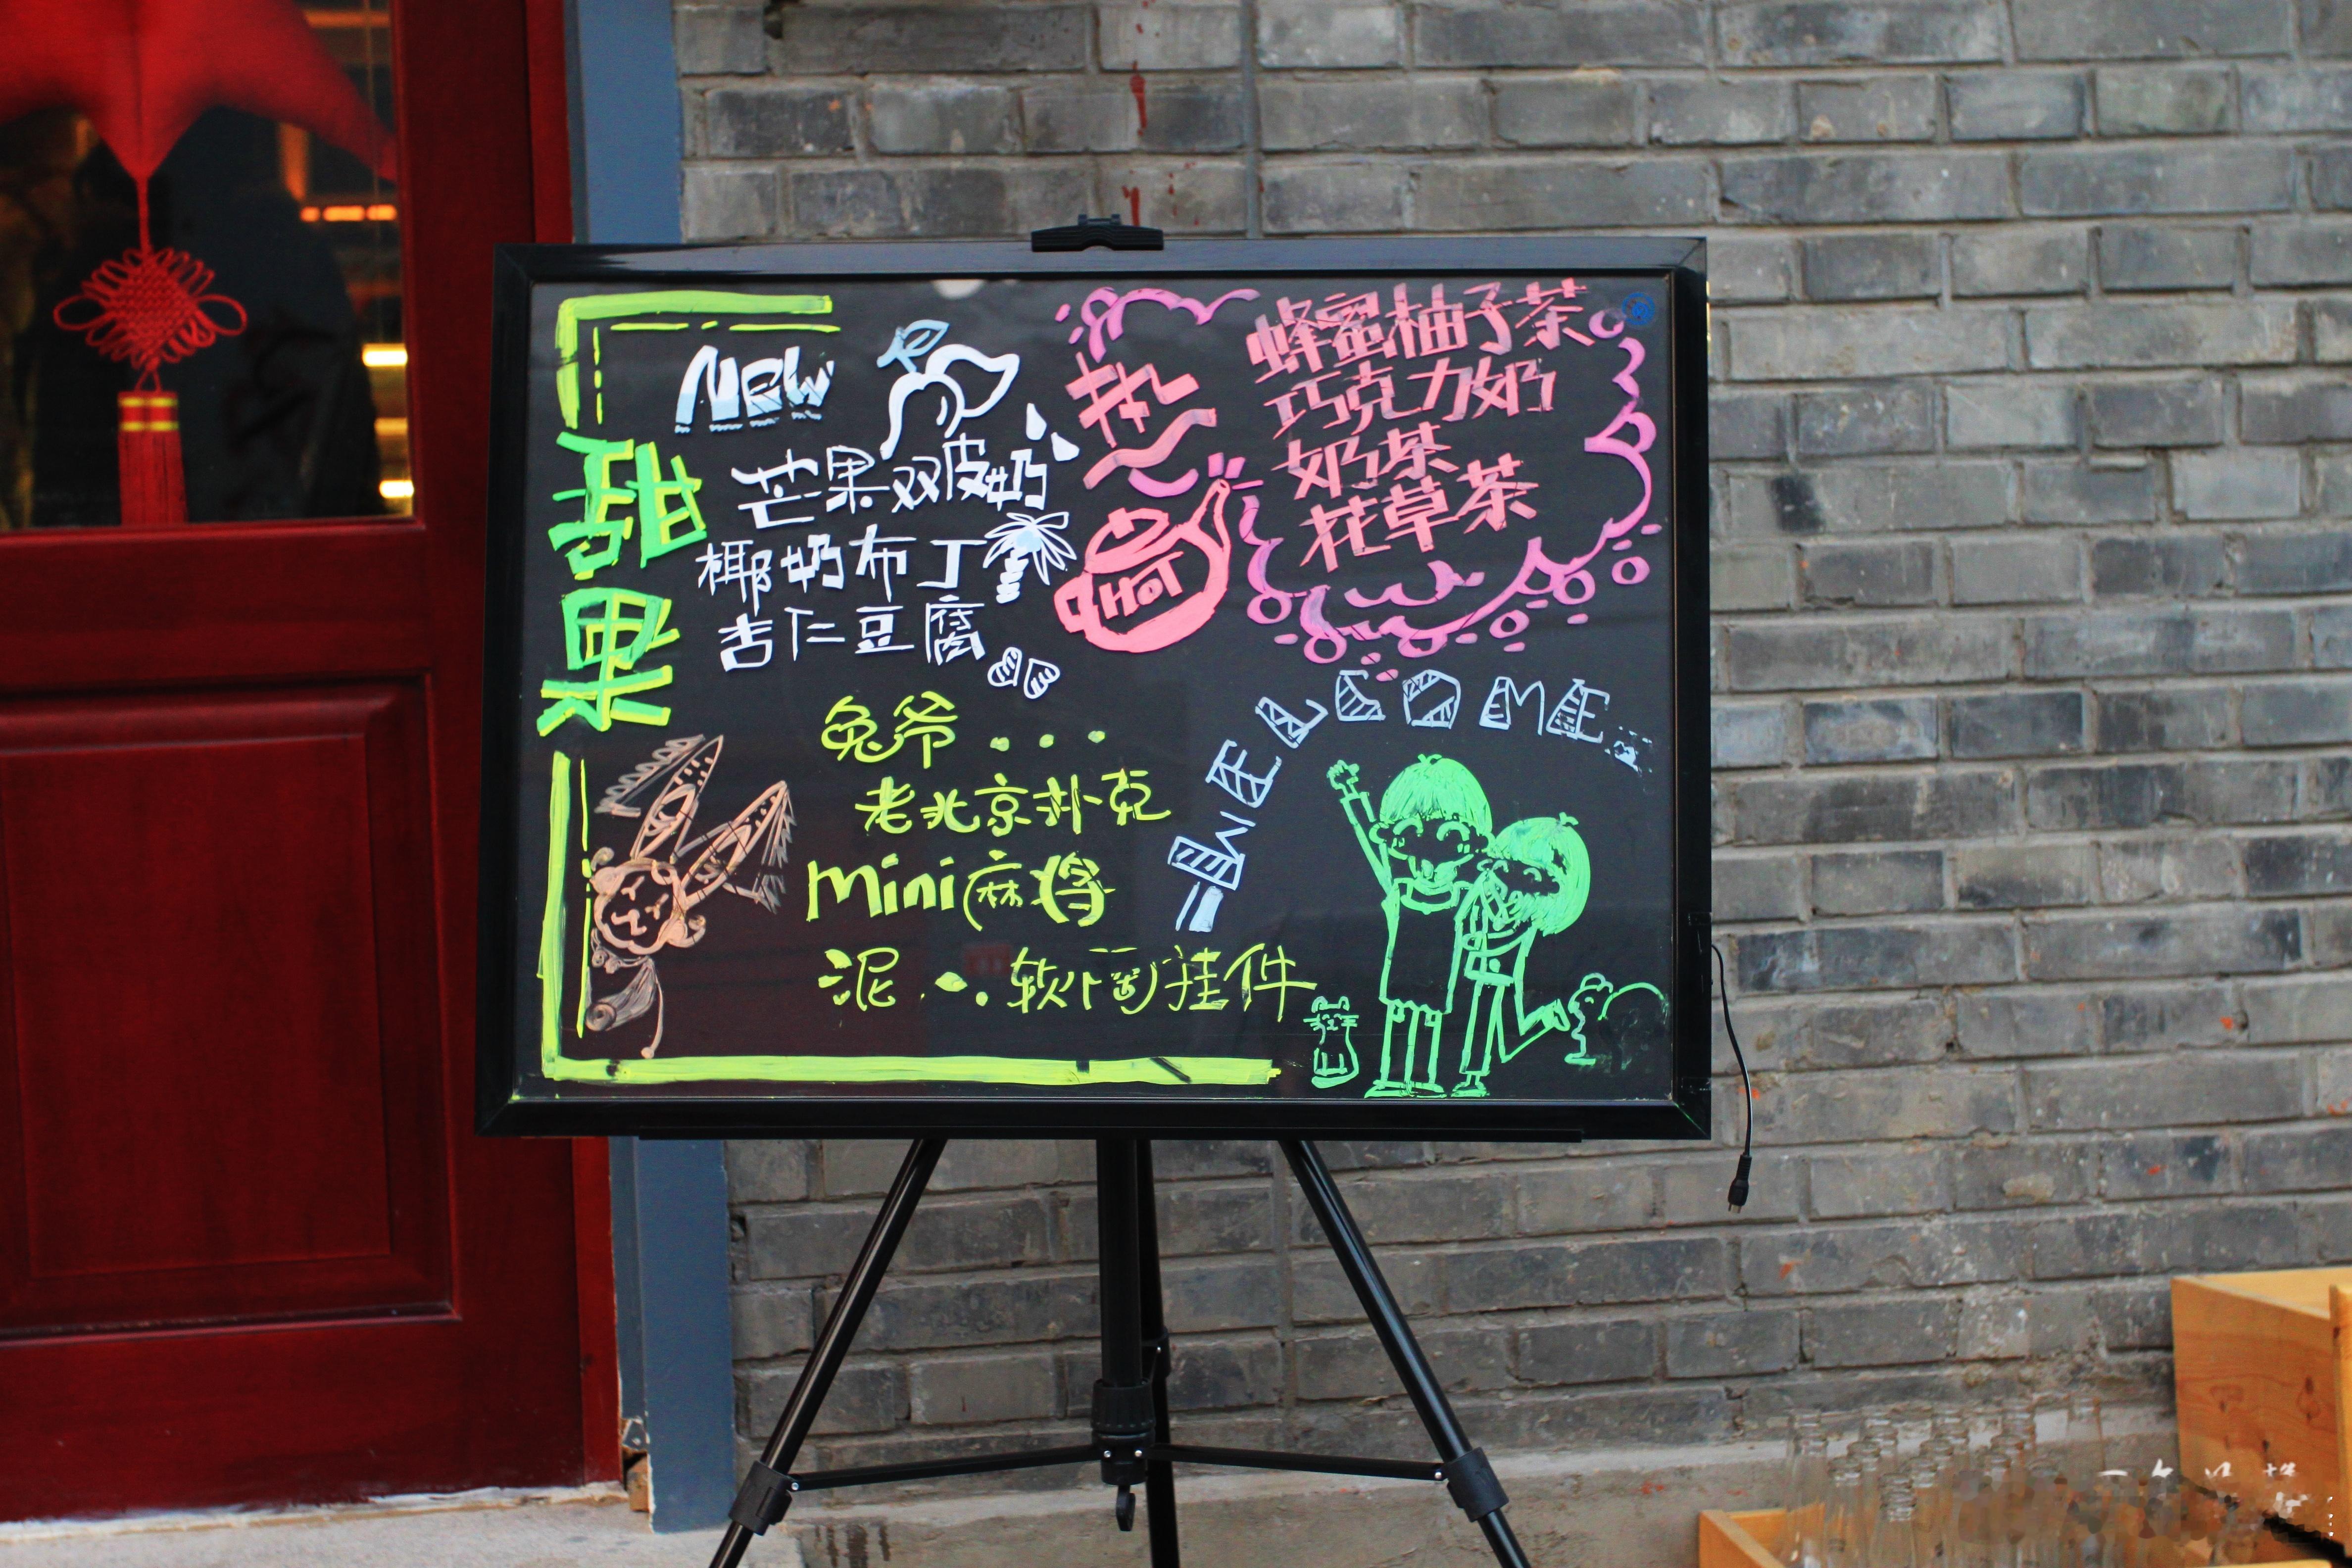 New
甜果
芒果双皮奶
椰奶布丁
杏仁豆腐
热
HOT
蜂蜜柚子茶
巧克力奶
奶茶
花草茶
兔爷...
老北京扑克
mini麻将
泥
软陶挂件
WELCOME